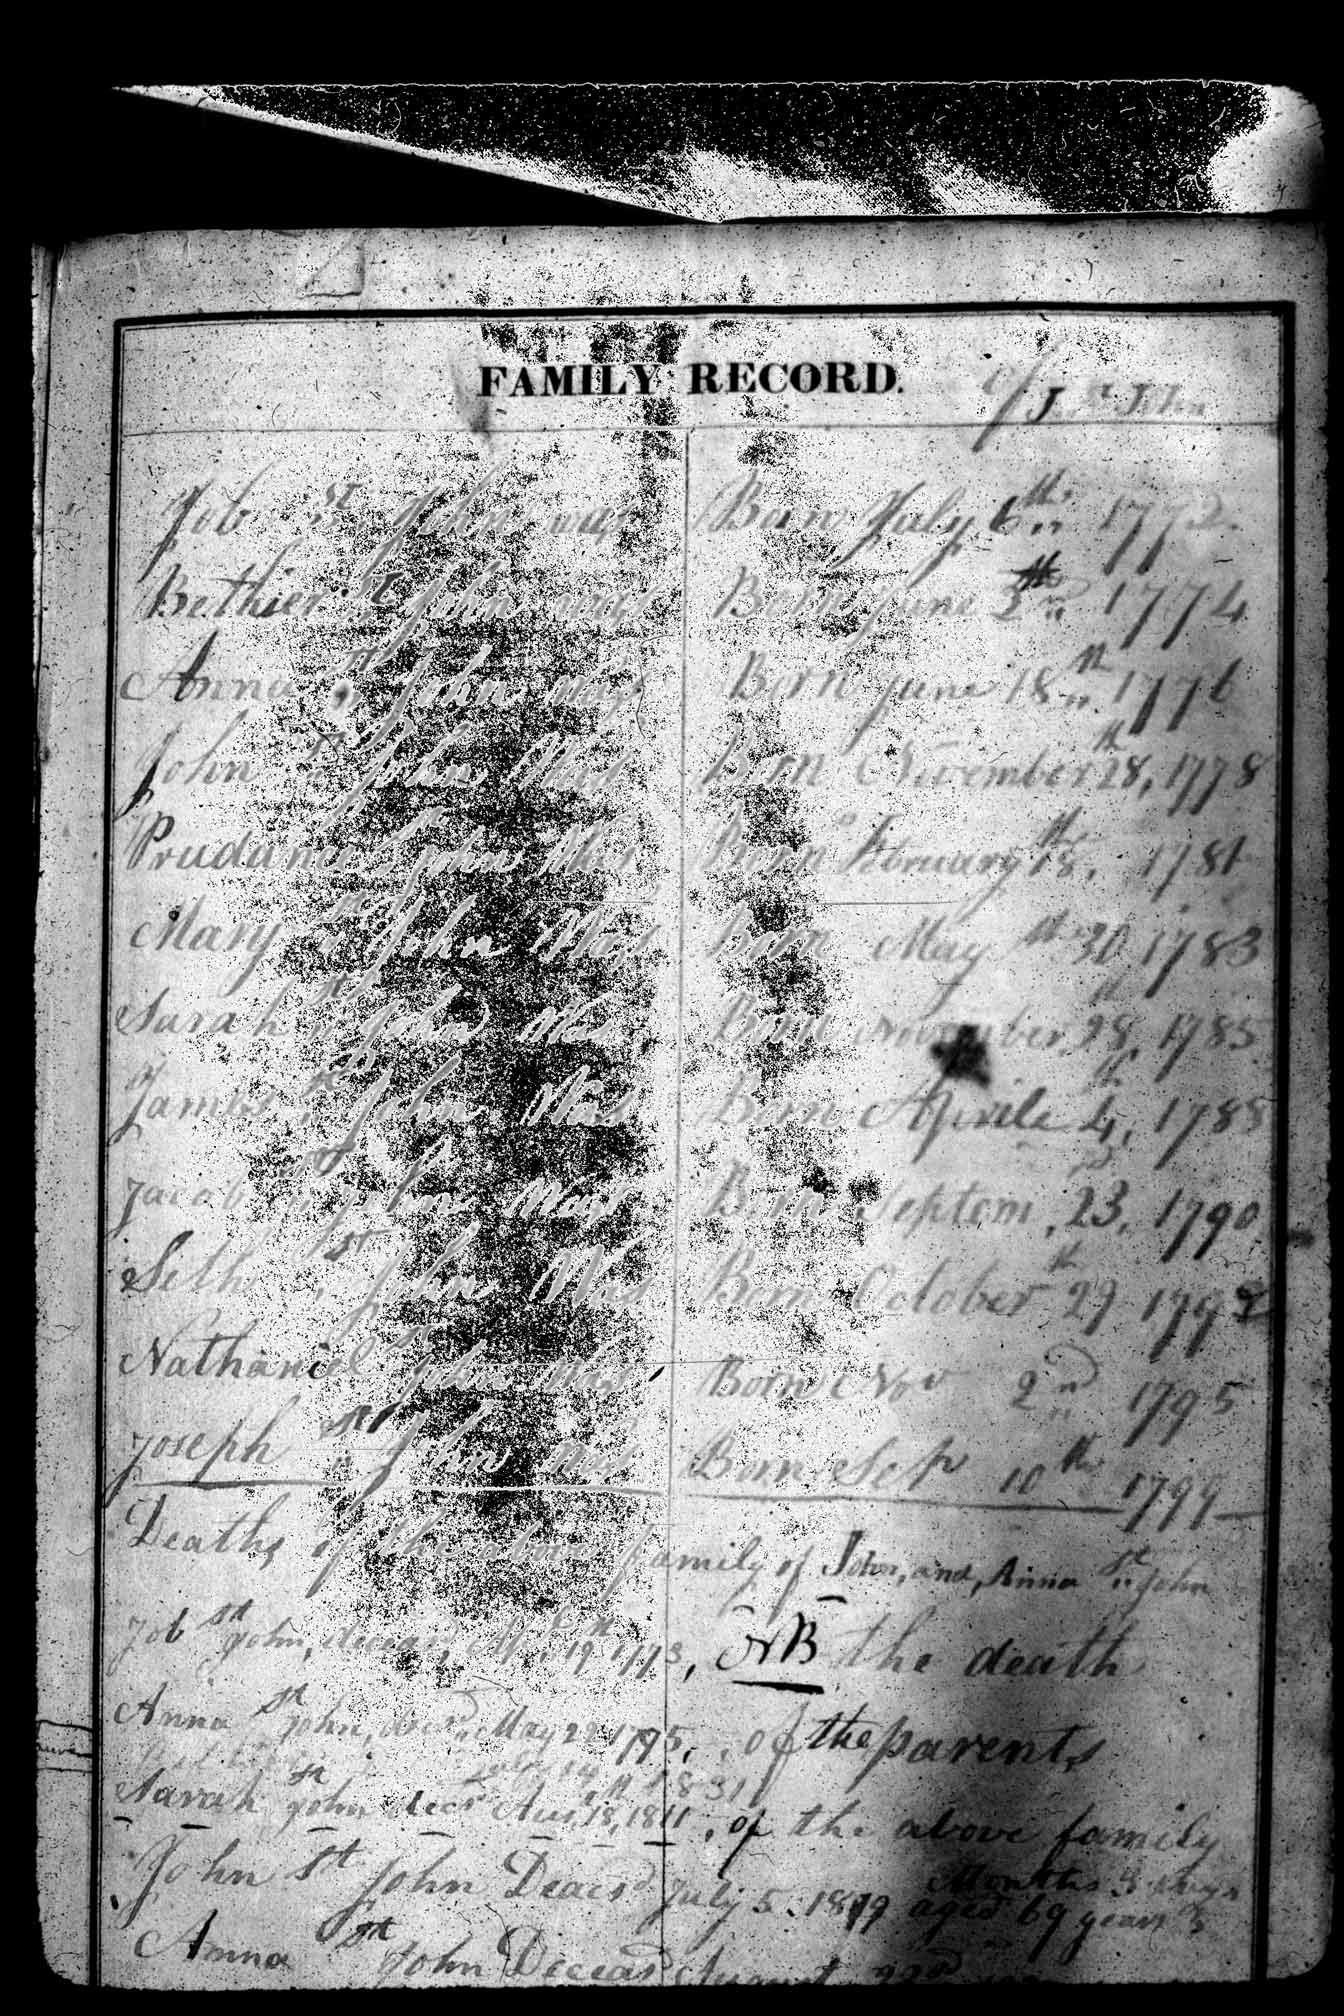 FAMILY RECORD. of J. St John
Job St John was Born July 6th 1772
Bethier St John was Born June 3rd 1774
Anna St John Was Born June 18th 1776
John St John Was Born November 28th, 1778
Prudance St John Was Born February 18th, 1781
Mary St John Was Born May 30th 1783
Sarah St John Was Born November 28th, 1785
James St John Was Born Aprile 4th, 1788
Jacob St John Was Born Septem, 23rd, 1790
Seth St John Was Born October 29th 1792
Nathaniel St John Was Born Nov 2nd 1795
Joseph St John Was Born Sep 10th 1799
Deaths of the above family of John, and, Anna St John
Job St John, deceasd, 19th 1773, NB the death
Anna St John, decd, May 22 1775, of the parents
1831
Sarah St John decd Aug, 18th, 1811, of the above family
John St John Deacsd July 5. 1819 aged 69 years Months 3 days
Anna St John Deceasd August 22d